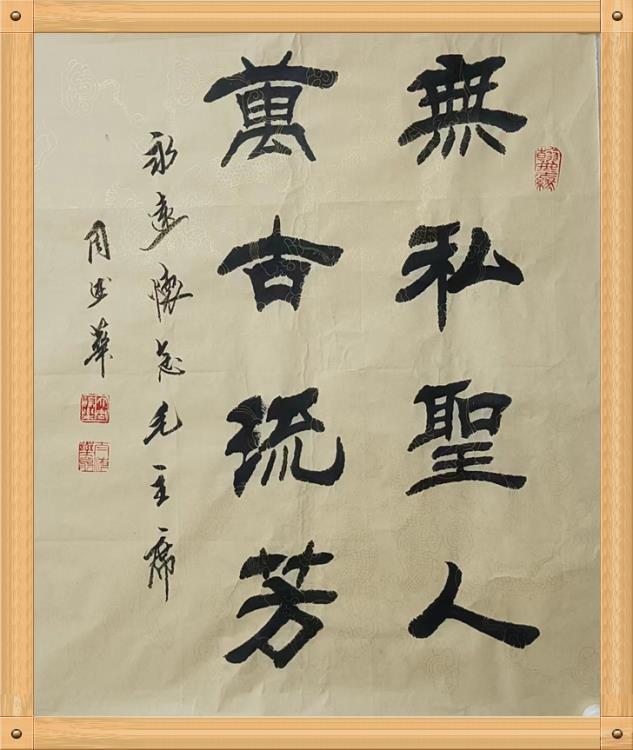 無私聖人
萬古流芳
永遠懷念毛主席
周 華